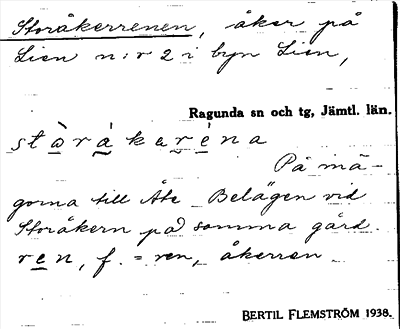 Storåkerrenen, åker på
Lien n:r 2 i byn Lien,
Ragunda sn och tg, Jämtl. län.
stòràkarèna
På mä-
gorna till Åte. Belägen vid
Storåkern på samma gård.
ren, f. = ren, åkerren.
BERTIL FLEMSTRÖM 1938.